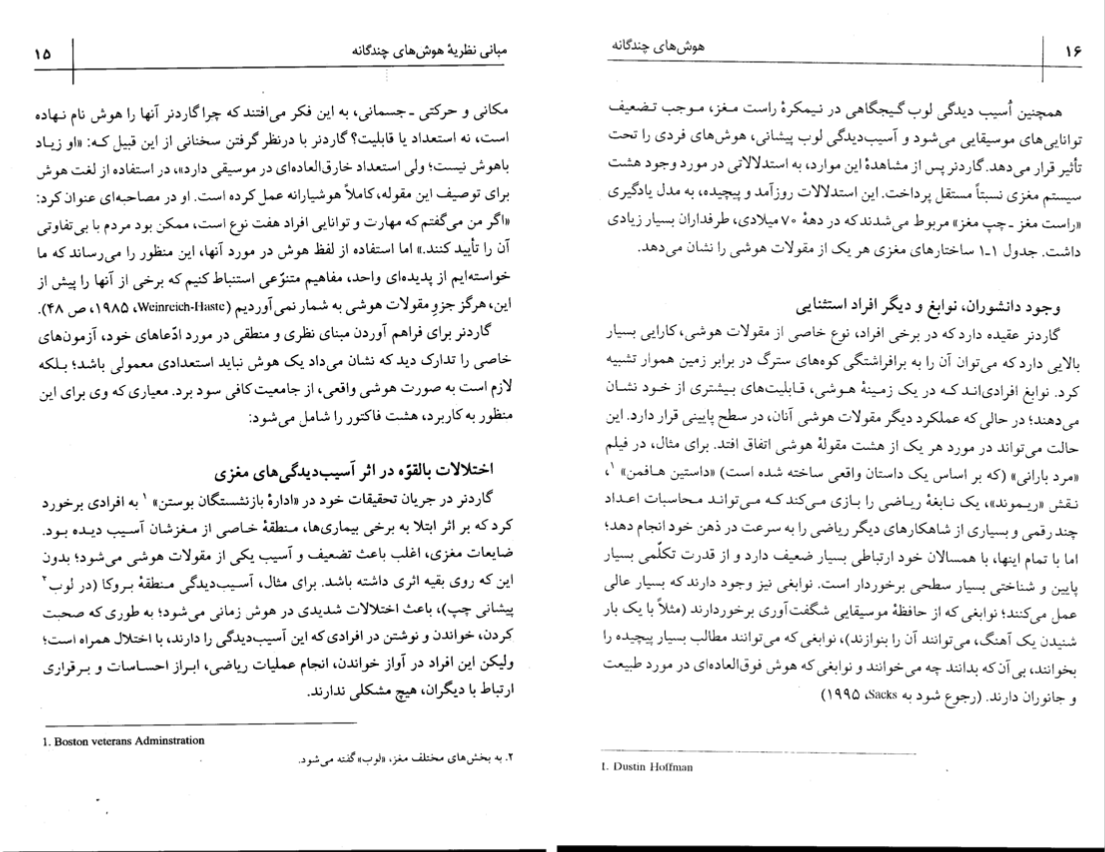 مبانی نظریهٔ هوش‌های چندگانه ۱۵
مکانی و حرکتی ـ جسمانی، به این فکر می‌افتند که چرا گاردنر آنها را هوش نام نهاده
است، نه استعداد یا قابلیت؟ گاردنر با درنظر گرفتن سخنانی از این قبیل که: «او زیاد
باهوش نیست؛ ولی استعداد خارق‌العاده‌ای در موسیقی دارد»، در استفاده از لغت هوش
برای توصیف این مقوله، کاملاً هوشیارانه عمل کرده است. او در مصاحبه‌ای عنوان کرد:
«اگر من می‌گفتم که مهارت و توانایی افراد هفت نوع است، ممکن بود مردم با بی‌تفاوتی
آن را تأیید کنند.» اما استفاده از لفظ هوش در مورد آنها، این منظور را می‌رساند که ما
خواسته‌ایم از پدیده‌ای واحد، مفاهیم متنوّعی استنباط کنیم که برخی از آنها را پیش از
این، هرگز جزو مقولات هوشی به شمار نمی‌آوردیم (Weinreich-Haste، ۱۹۸۵، ص ۴۸).
گاردنر برای فراهم آوردن مبنای نظری و منطقی در مورد ادّعاهای خود، آزمون‌های
خاصی را تدارک دید که نشان می‌داد یک هوش نباید استعدادی معمولی باشد؛ بلکه
لازم است به صورت هوشی واقعی، از جامعیت کافی سود برد. معیاری که وی برای این
منظور به کار برد، هشت فاکتور را شامل می‌شود:
اختلالات بالقوّه در اثر آسیب‌دیدگی‌های مغزی
گاردنر در جریان تحقیقات خود در «ادارهٔ بازنشستگان بوستن» ۱ به افرادی برخورد
کرد که بر اثر ابتلا به برخی بیماری‌ها، منطقهٔ خاصی از مغزشان آسیب دیده بود.
ضایعات مغزی، اغلب باعث تضعیف و آسیب یکی از مقولات هوشی می‌شود؛ بدون
این که روی بقیه اثری داشته باشد. برای مثال، آسیب‌دیدگی منطقهٔ بروکا (در لوب۲
پیشانی چپ)، باعث اختلالات شدیدی در هوش زمانی می‌شود؛ به طوری که صحبت
کردن، خواندن و نوشتن در افرادی که این آسیب‌دیدگی را دارند، با اختلال همراه است؛
ولیکن این افراد در آواز خواندن، انجام عملیات ریاضی، ابراز احساسات و برقراری
ارتباط با دیگران، هیچ مشکلی ندارند.
1. Boston veterans Adminstration
۲. به بخش‌های مختلف مغز، «لوب» گفته می‌شود.
۱۶ هوش‌های چندگانه
همچنین آسیب دیدگی لوب گیجگاهی در نیمکرهٔ راست مغز، موجب تضعیف
توانایی‌های موسیقایی می‌شود و آسیب‌دیدگی لوب پیشانی، هوش‌های فردی را تحت
تأثیر قرار می‌دهد. گاردنر پس از مشاهدهٔ این موارد، به استدلالاتی در مورد وجود هشت
سیستم مغزی نسبتاً مستقل پرداخت. این استدلالات روزآمد و پیچیده، به مدل یادگیری
«راست مغز ـ چپ مغز» مربوط می‌شدند که در دههٔ ۷۰ میلادی، طرفداران بسیار زیادی
داشت. جدول ۱ـ۱ ساختارهای مغزی هر یک از مقولات هوشی را نشان می‌دهد.
وجود دانشوران، نوابغ و دیگر افراد استثنایی
گاردنر عقیده دارد که در برخی افراد، نوع خاصی از مقولات هوشی، کارایی بسیار
بالایی دارد که می‌توان آن را به برافراشتگی کوه‌های سترگ در برابر زمین هموار تشبیه
کرد. نوابغ افرادی‌اند که در یک زمینهٔ هوشی، قابلیت‌های بیشتری از خود نشان
می‌دهند؛ در حالی که عملکرد دیگر مقولات هوشی آنان، در سطح پایینی قرار دارد. این
حالت می‌تواند در مورد هر یک از هشت مقولهٔ هوشی اتفاق افتد. برای مثال، در فیلم
«مرد بارانی» (که بر اساس یک داستان واقعی ساخته شده است) «داستین هافمن» ۱،
نقش «ریموند»، یک نابغهٔ ریاضی را بازی می‌کند که می‌تواند محاسبات اعداد
چند رقمی و بسیاری از شاهکارهای دیگر ریاضی را به سرعت در ذهن خود انجام دهد؛
اما با تمام اینها، با همسالان خود ارتباطی بسیار ضعیف دارد و از قدرت تکلّمی بسیار
پایین و شناختی بسیار سطحی برخوردار است. نوابغی نیز وجود دارند که بسیار عالی
عمل می‌کنند؛ نوابغی که از حافظهٔ موسیقایی شگفت‌آوری برخوردارند (مثلاً با یک بار
شنیدن یک آهنگ، می‌توانند آن را بنوازند)، نوابغی که می‌توانند مطالب بسیار پیچیده را
بخوانند، بی‌آن که بدانند چه می‌خوانند و نوابغی که هوش فوق‌العاده‌ای در مورد طبیعت
و جانوران دارند. (رجوع شود به Sacks، ۱۹۹۵)
1. Dustin Hoffman